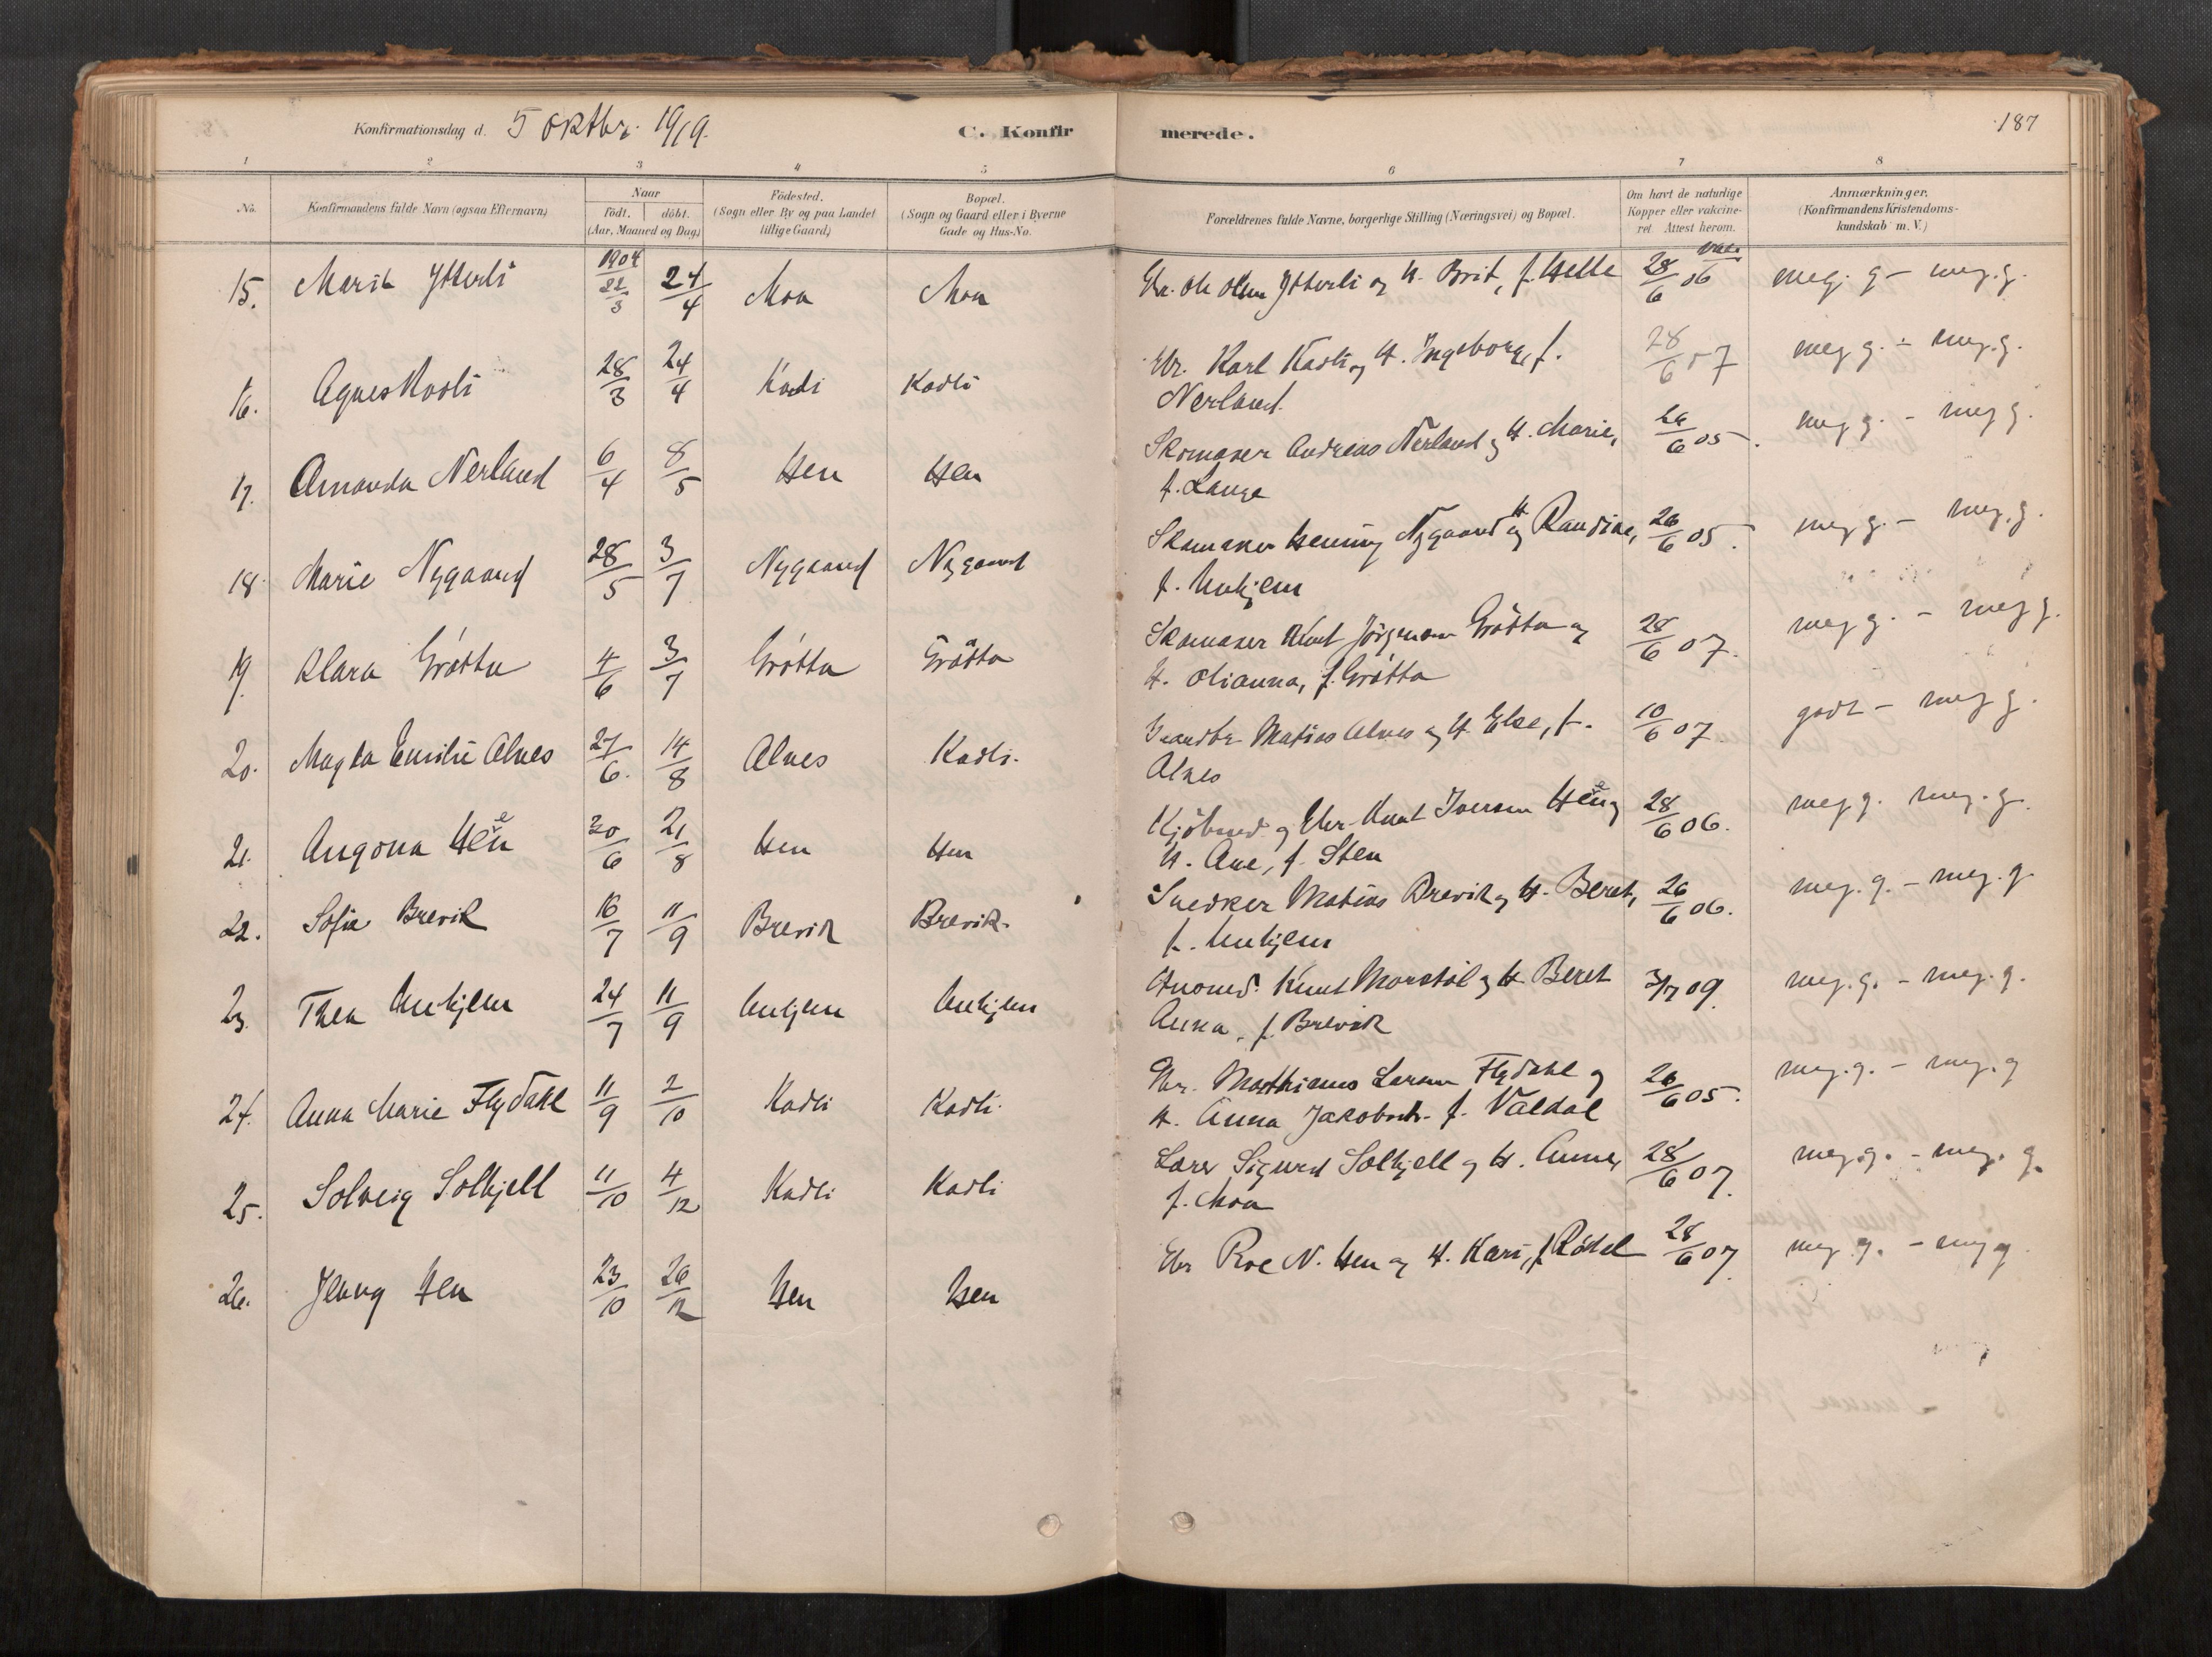 Konfirmationsdag d. 5 oktbr. 1919. C. Konfirmerede. 187
1 2 3 4 5 6 7 8
No. Konfirmandens fulde Navn (ogsaa Efternavn) Naar födt. döbt. (Aar, Maaned og Dag) Födested. (Sogn eller By og paa Landet tillige Gaard) Bopæl. (Sogn og Gaard eller i Byerne Gade og Hus-No. Forældrenes fulde Navne, borgerlige Stilling (Næringsvei) og Bopæl. Om havt de naturlige Kopper eller vakcineret Attest herom. Anmærkninger. (Konfirmandens Kristendomskundskab m. V.)
15. Marit Ytterli 1904 22/3 24/4 Moa Moa Gbr. Ole Olsen Ytterli og H. Brit, f. Helle vac. 28/6 06 meg. g - meg. g.
16. Agnes Kavli 28/3 24/4 Kavli Kavli Gbr. Karl Kavli og H. Ingeborg, f. 28/6 07 meg g. - meg. g.
Nerland.
17. Amanda Nerland 6/4 8/5 Hen Hen Skomaker Andreas Nerland og H. Marie, 26/6 05. meg g. - meg g.
f. Lange
18. Marie Nygaard 28/5 3/7 Nygaard Nygaard Skomaker Henning Nygaard og H Randine, 26/6 05. meg g. - meg. g.
f. Unhjem
19. Klara Gråtta 4/6 3/7 Gråtta Gråtta Skomaker Knut Jörgensen Gråtta og 28/6 07. meg g. - meg g.
H. Olianna, f. Gråtta
20. Magda Emilie Alnes 27/6. 14/8 Alnes Kavli. Matias Alnes og H Else, f. 10/6 07. godt - meg g.
Alnes
21. Angona Hen 30/6 21/8 Hen Hen Kjöbmd og Gbr. Knut Iversen Hen og 28/6 06. meg g. meg. g.
H. Ane, f. Sten
22. Sofie Brevik 16/7 11/9 Brevik Brevik. Snedker Matias Brevik og H. Beret, 26/6 06. meg. g. - meg. g.
f. Unhjem
23. Thea Unhjem 24/7 11/9 Unhjem Unhjem Knut Morstöl og H. Beret 3/7 09. meg. g. - meg. g.
Anna, f. Brevik
24. Anna Marie Flydahl 11/9 2/10 Kavli Kavli. Gbr. Matthias Larsen Flydahl og 26/6 05. meg. g. - meg. g
H. Anna Jakobsdr. f. Valdal
25. Solveig Solhjell 11/10 4/12 Kavli Kavli Lærer Sigurd Solhjell og H. Anne, 28/6 07. meg. g. - meg. g.
f. Moa
26. Jenny Hen 23/10 26/12 Hen Hen Gbr Roe N. Hen og H. Kari, f. Rödal 28/6 07. meg g. - meg g.